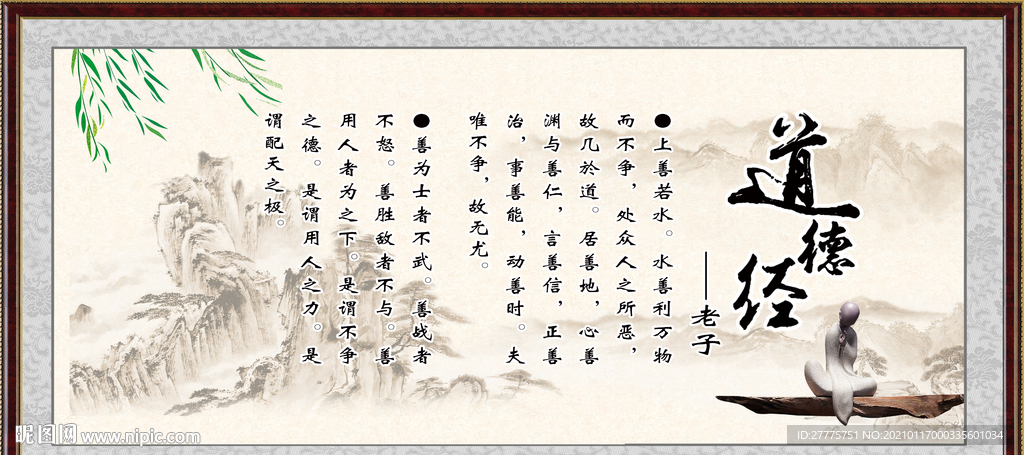 道德经
——老子
●上善若水。水善利万物
而不争，处众人之所恶，
故几於道。居善地，心善
渊与善仁，言善信，正善
治，事善能，动善时。夫
唯不争，故无尤。
●善为士者不武。善战者
不怒。善胜敌者不与。善
用人者为之下。是谓不争
之德。是谓用人之力。是
谓配天之极。
昵图网 www.nipic.com
ID:27775751 NO:20210117000335601034